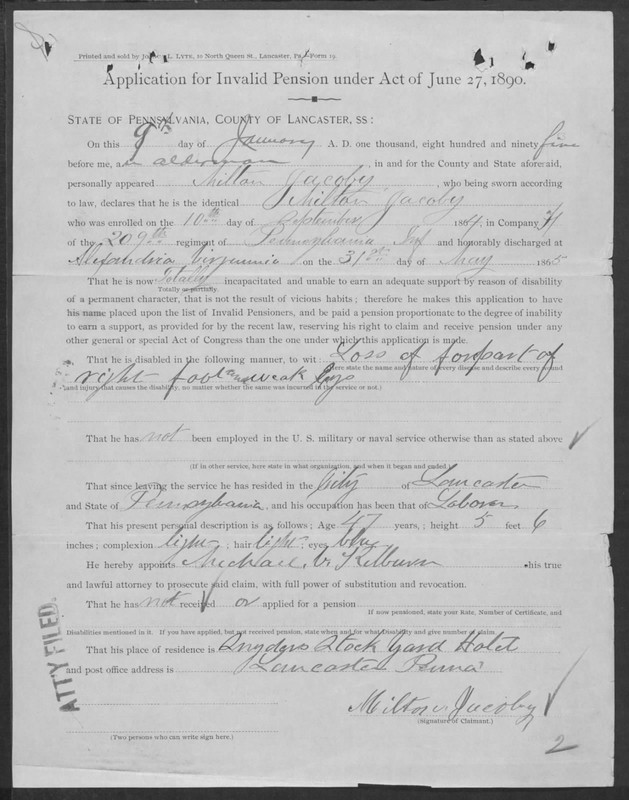 Printed and sold by L. LYTE, 10 North Queen St., Lancaster, Pa. Form 19.
Application for Invalid Pension under Act of June 27, 1890.
STATE OF PENNSYLVANIA, COUNTY OF LANCASTER, SS:
On this 9th day of January A. D. one thousand, eight hundred and ninety five
before me, an alderman, in and for the County and State aforesaid,
personally appeared Milton Jacoby, who being sworn according
to law, declares that he is the identical Milton Jacoby
who was enrolled on the 10th day of September 1864, in Company
of the 209th regiment of Pennsylvania and honorably discharged at
Alexandria Virginnia on the 31st day of May 1865
That he is now Totally incapacitated and unable to earn an adequate support by reason of disability
Totally or partially.
of a permanent character, that is not the result of vicious habits; therefore he makes this application to have
his name placed upon the list of Invalid Pensioners, and be paid a pension proportionate to the degree of inability
to earn a support, as provided for by the recent law, reserving his right to claim and receive pension under any
other general or special Act of Congress than the one under which this application is made.
That he is disabled in the following manner, to wit: Loss of forpart of
Here state the name and nature of every disease and describe every wound
right foot and weak legs
and injury that causes the disability, no matter whether the same was incurred in the service or not.)
That he has not been employed in the U. S. military or naval service otherwise than as stated above
(If in other service, here state in what organization, and when it began and ended.)
That since leaving the service he has resided in the City of Lancaster
and State of Pennsylvania, and his occupation has been that of Laborer
That his present personal description is as follows; Age 47 years,; height 5 feet 6
inches; complexion light; hair light; eyes blue
He hereby appoints Michael Kilburn his true
and lawful attorney to prosecute said claim, with full power of substitution and revocation.
That he has not received or applied for a pension
If now pensioned, state your Rate, Number of Certificate, and
Disabilities mentioned in it. If you have applied, but not received pension, state when and for what Disability and give number of claim.
That his place of residence is Snyders Stock Yard Hotel
and post office address is Lancaster Penna
Milton Jacoby
(Signature of Claimant.)
(Two persons who can write sign here.)
ATTY FILED.
2